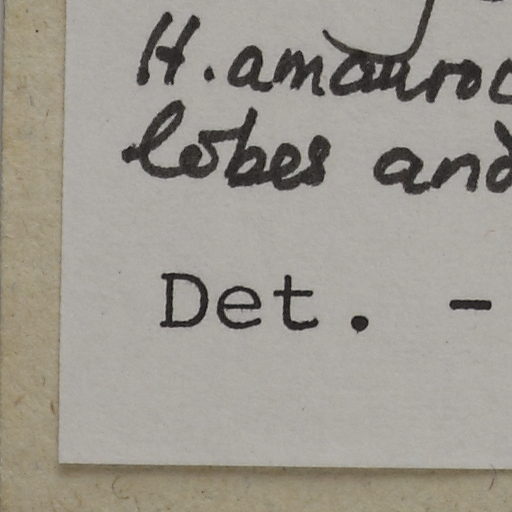 H. amauroc
lobes and
Det. -